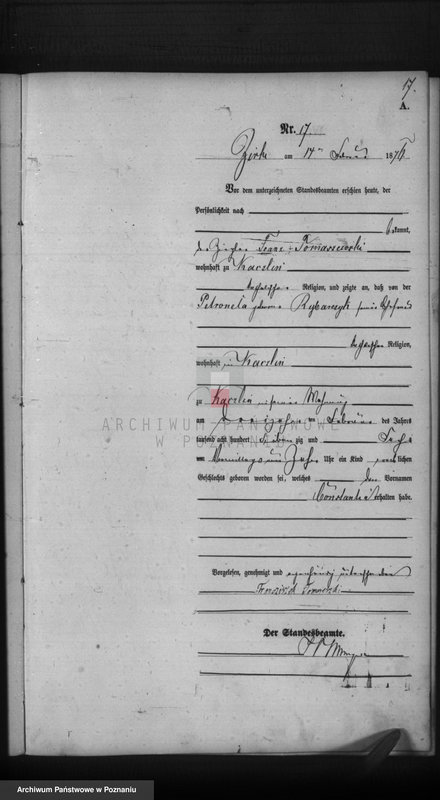 17.
A.
Nr. 17.
Zirke am 14ten 1876
Vor dem unterzeichneten Standesbeamten erschien heute, der
Persönlichkeit nach
bekannt,
der Ziegler Franz Tomaszewski
wohnhaft zu Kaczlin
katholischer Religion, und zeigte an, daß von der
Petronela geborne Rybarczyk seiner Ehefrau
katholischer Religion,
wohnhaft zu Kaczlin
zu Kaczlin in seiner Wohnung
am dreizehn ten Februar des Jahres
tausend acht hundert siebenzig und sechs
um Vormittags um Uhr ein Kind lichen
Geschlechts geboren worden sei, welches den Vornamen
erhalten habe.
Vorgelesen, genehmigt und
Der Standesbeamte.
ARCHIWUM PAŃSTWOWE
W POZNANIU
Archiwum Państwowe w Poznaniu